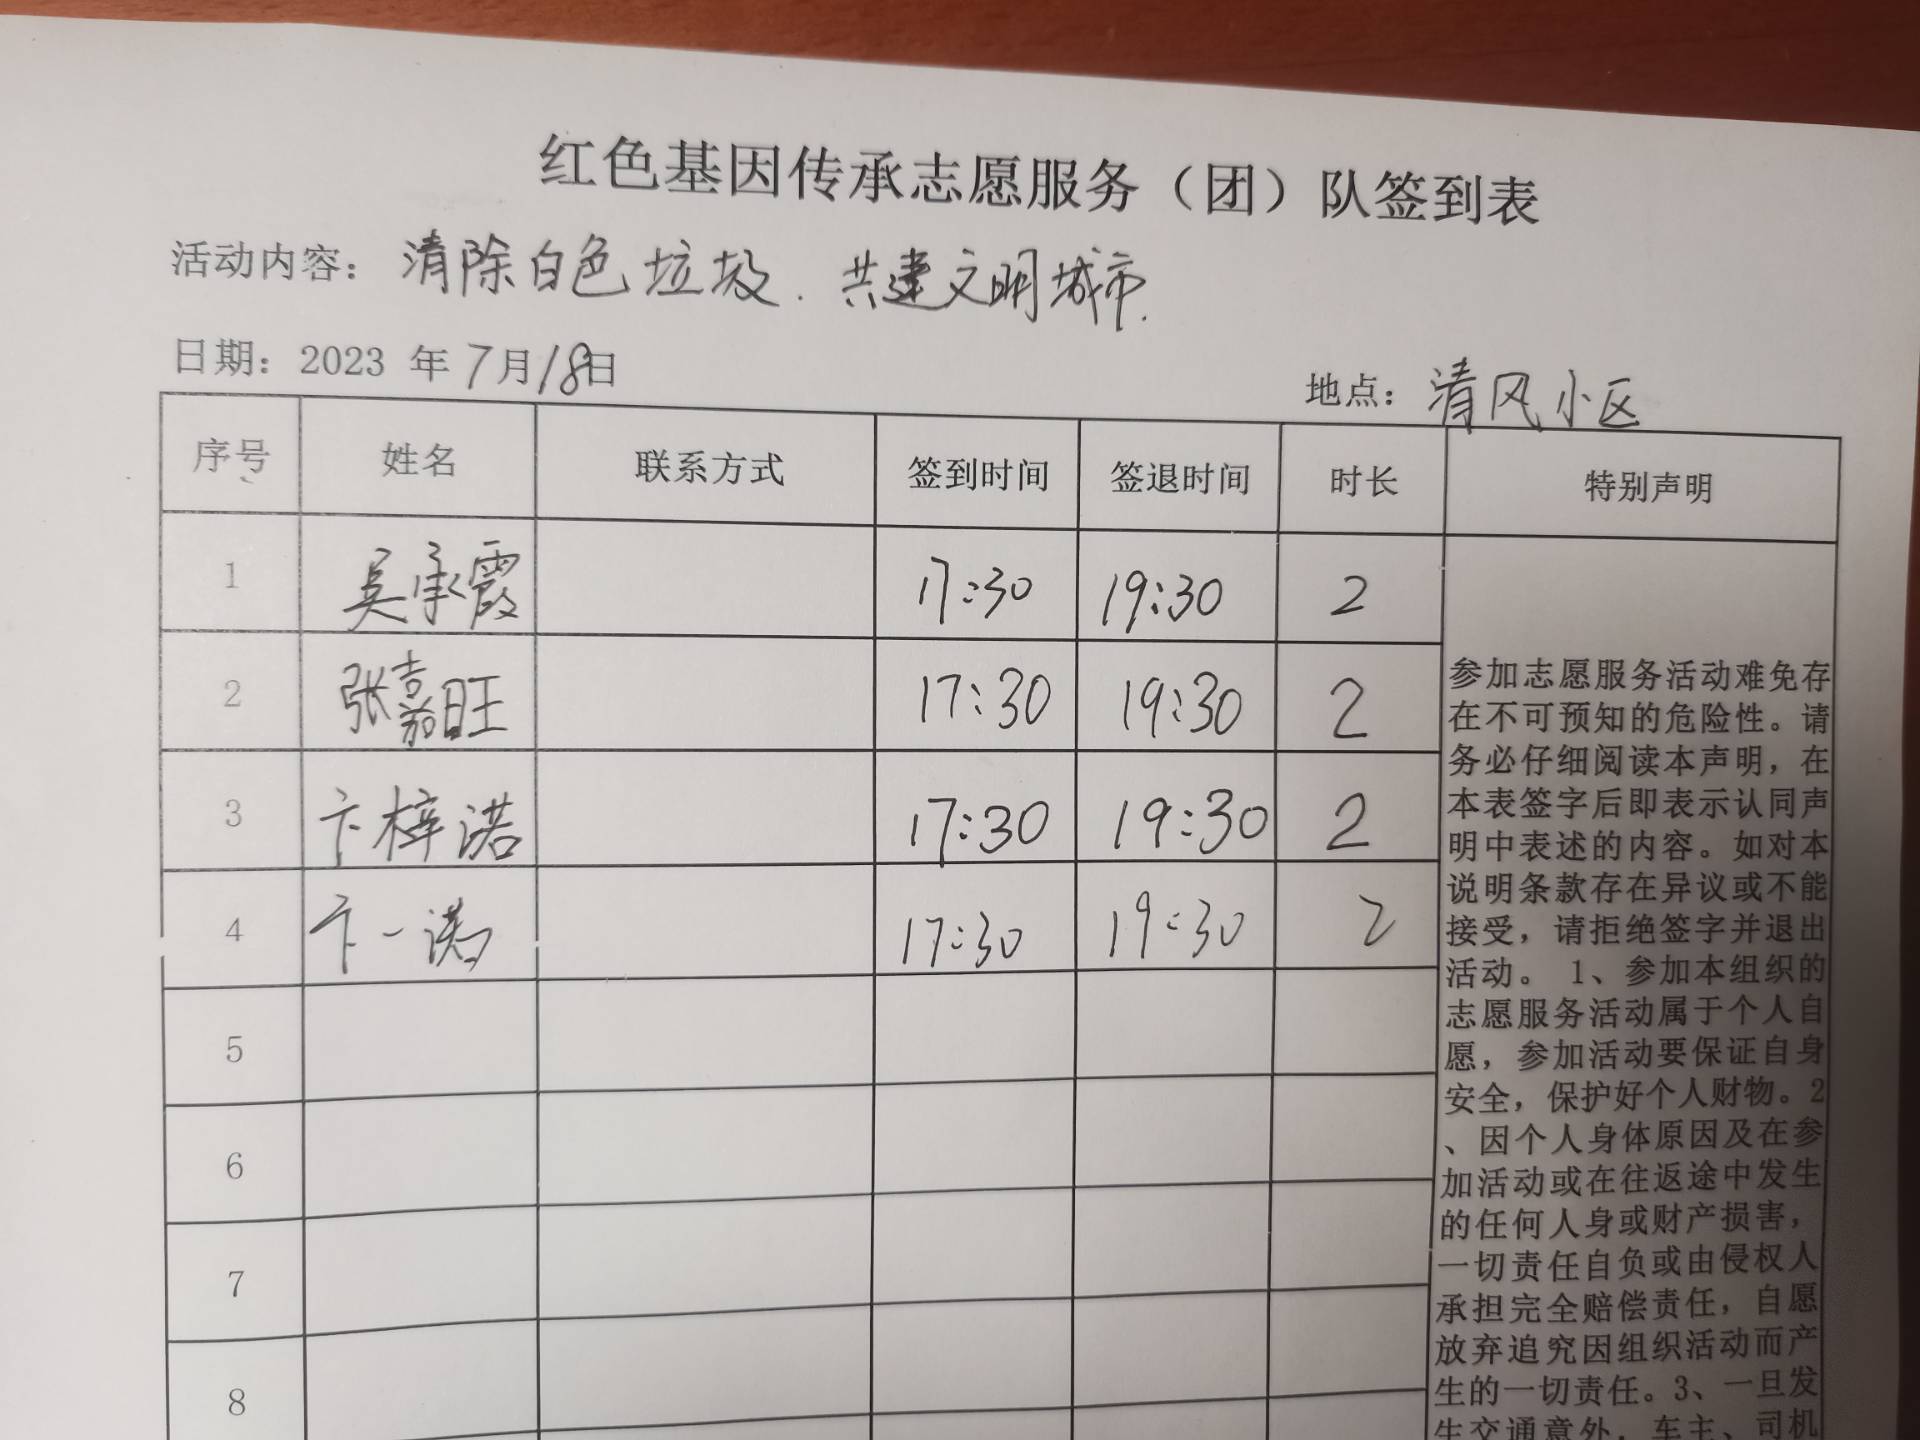 红色基因传承志愿服务（团）队签到表
活动内容：清除白色垃圾．共建文明城市．
日期：2023 年 7月18日
地点：清风小区
序号 姓名 联系方式 签到时间 签退时间 时长 特别声明
1 吴承霞 17:30 19:30 2
2 张嘉旺 17:30 19:30 2
3 卞梓诺 17:30 19:30 2
4 卞一诺 17:30 19:30 2
5
6
7
8
参加志愿服务活动难免存
在不可预知的危险性。请
务必仔细阅读本声明，在
本表签字后即表示认同声
明中表述的内容。如对本
说明条款存在异议或不能
接受，请拒绝签字并退出
活动。 1、参加本组织的
志愿服务活动属于个人自
愿，参加活动要保证自身
安全，保护好个人财物。2
、因个人身体原因及在参
加活动或在往返途中发生
的任何人身或财产损害，
一切责任自负或由侵权人
承担完全赔偿责任，自愿
放弃追究因组织活动而产
生的一切责任。3、一旦发
生交通意外，车主、司机